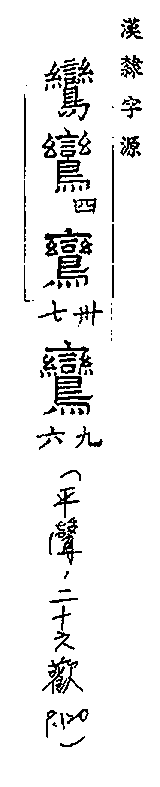 漢隸字源
鸞鸞四鸞卅七鸞九六（平聲，二十六歡 P.120）